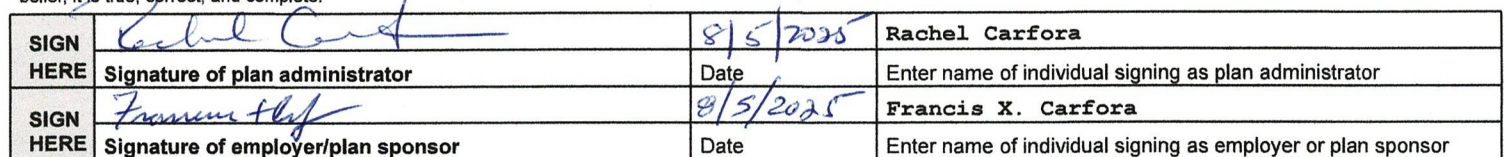 belief, it is true, correct, and complete.
SIGN HERE Rachel Carfora 8/5/2025 Rachel Carfora
Signature of plan administrator Date Enter name of individual signing as plan administrator
SIGN HERE 8/5/2025 Francis X. Carfora
Signature of employer/plan sponsor Date Enter name of individual signing as employer or plan sponsor